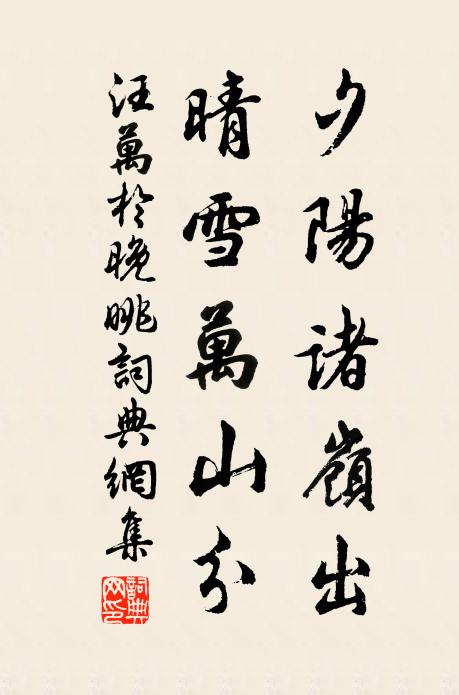 夕陽諸嶺出
晴雪萬山分
汪萬於晚眺詞典網集
詞典网印